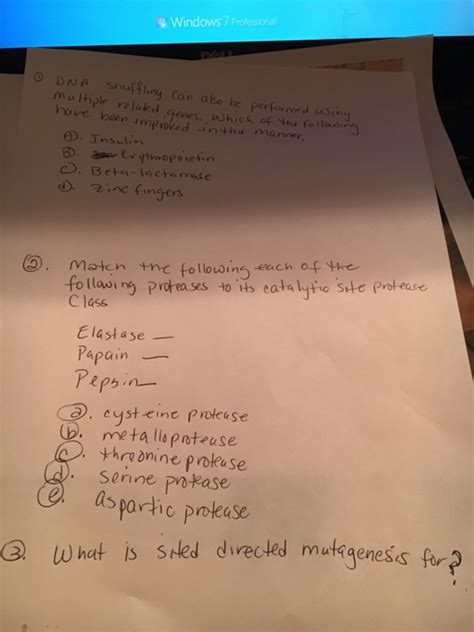 Windows 7 Professional
DELL
① DNA shuffling can also be performed using
multiple related genes. Which of the following
have been improved in this manner.
a). Insulin
B). Erythropoietin
C). Beta-lactamase
d). Zinc fingers
②. Match the following each of the
following proteases to its catalytic site protease
Class
Elastase —
Papain —
Pepsin —
ⓐ. cysteine protease
ⓑ. metalloprotease
ⓒ. threonine protease
ⓓ. serine protease
ⓔ. aspartic protease
③. What is sited directed mutagenesis for?